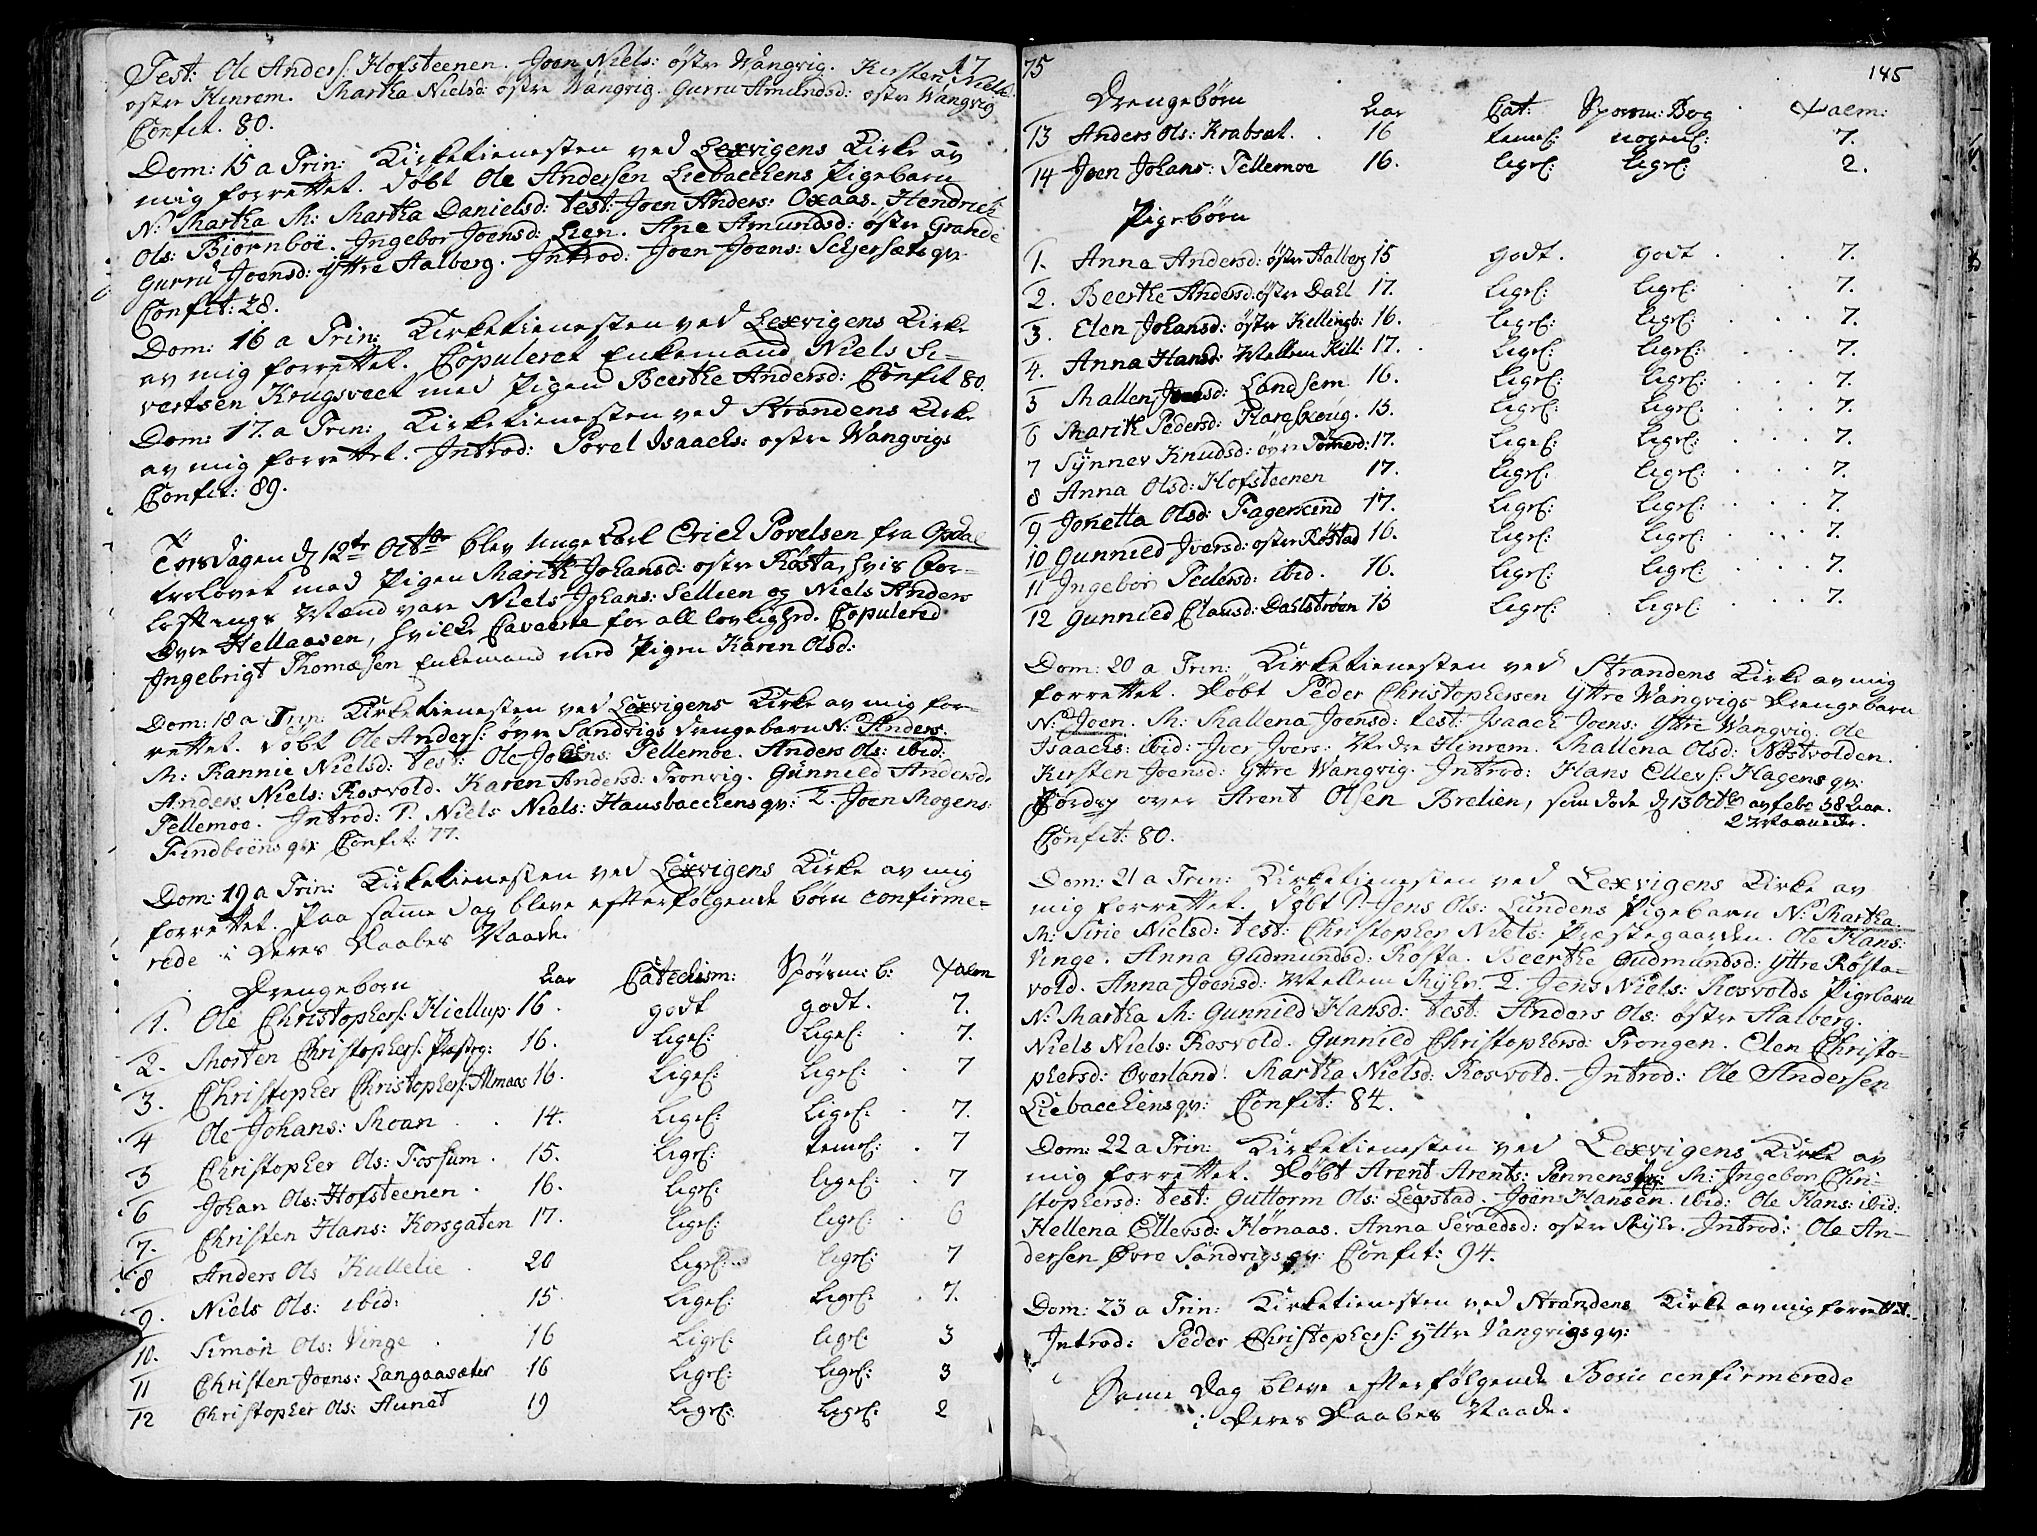 17
Test: Ole Anders: Hofsteenen. Joen Niels: östre Wangvig. Kirsten Nielsd:
östre Hinrem. Martha Nielsd: östre Wangvig. Gurru Amundsd: östre Wangvig
Confit. 80.
Dom: 15 a Trin: Kirketienesten ved Lexvigens Kirke av
mig forrettet. Döbt Ole Andersen Liebacchens Pigebarn
N: Martha M: Martha Danielsd: test: Joen Anders: Oxaas. Hendrich
Ols: Biörnböe. Ingebor Joensd: Lien. Ane Amundsd: östre Grande
Gurru Joensd: yttre Aalberg. Introd: Joen Joens: qv:
Confit: 28.
Dom: 16 a Trin: Kirketienesten ved Lexvigens Kirke
av mig forrettet. Copuleret Enkemand Niels Si-
vertsen Krugsveet med Pigen Beerthe Andersd: Confit 80.
Dom: 17. a Trin: Kirketienesten ved Strandens Kirke
av mig forrettet. Introd: Povel Isaachs: östre Wangvigs
Confit: 89.
Torsdagen d 12te Octbr blev unge Karl Erich Povelsen fra Opdal
trolovet med Pigen Marith Johansd: östre Rösta, hvis For-
loftnings Mænd vare Niels Johans: Sellien og Niels Anders
Övre Hellaasen, hvilke Caverte for all lovlighed. Copulered
Ingebrigt Thomæsen Enkemand med Pigen Karen Olsd:
Dom: 18 a Trin: Kirketienesten ved Lexvigens Kirke av mig for-
rettet. Döbt Ole Anders: övre Sandvigs Drengebarn N: Anders.
M: Rannie Nielsd: test: Ole Johans: Tellemoe. Anders Ols: ibid:
Anders Niels: Rosvold. Karen Andersd: Tronvig. Gunnild Andersd:
Tellemoe. Introd: 1. Niels Niels: Hausbacchens qv: 2. Joen Mogens:
Findböens qv: Confit: 77.
Dom: 19 a Trin: Kirketienesten ved Lexvigens Kirke av mig
forrettet. Paa samme Dag bleve efterfölgende börn confirme-
rede i Deres Daabes Naade.
Drengebörn Aar Catechism: Spörsm: b: Psalm
1. Ole Christophers: Hiellup 16. godt godt. 7.
2. Morten Christophers: Præstg: 16. liges: liges: 7.
3. Christopher Christophers: Almaas 16. liges: liges: 7
4 Ole Johans: Moan 14. liges: liges: 7.
5 Christopher Ols: Fossum. 15. liges: teml: 7
6 Johan Ols: Hofsteenen 16. liges: liges: 7
7. Christen Hans: Korsgaten 17. liges: liges: 6
8 Anders Ols Kullelie 20 liges: liges: 7
9. Niels Ols: ibid: 15 liges: liges: 7.
10. Simon Ols: Vinge 16 liges: liges: 3
11 Christen Joens: Langaasæter 16 liges: liges: 3
12 Christopher Ols: Aunat 19 liges: liges: 2
75
145
Drengebörn Aar Cat: Spörsm: Bog Psalm:
13 Anders Ols: Krabsæt. 16 teml: nogenl: 7.
14 Joen Johans: Tellemoe 16. liges: liges: 2.
Pigebörn
1. Anna Andersd: östre Aalberg 15 godt. godt 7.
2. Beerthe Andersd: östre Dahl 17. liges: liges: 7.
3. Elen Johansd: östre Kellingb: 16. liges: liges: 7.
4. Anna Hansd: Mellem Kill: 17. liges: liges: 7.
5 Mallen Joensd: Landsem 16. liges: liges: 7.
6 Marith Pedersd: Hareskoug. 15. liges: liges: 7.
7 Synnev Knudsd: övre 17. liges: liges: 7.
8 Anna Olsd: Hofsteenen 17. liges: liges: 7.
9 Jonetta Olsd: Fagerlind 17. liges: liges: 7.
10 Gunnild Iversd: östre Röstad 16. liges: liges: 7.
11 Ingebor Pedersd: ibid. 16. liges: liges: 7.
12 Gunnild Clausd: Dahlströen 15 liges: liges: 7.
Dom: 20 a Trin: Kirketienesten ved Strandens Kirke av mig
forrettet. Döbt Peder Christophersen Yttre Wangvigs Drengebarn
N: Joen. M: Mallena Joensd: test: Isaach Joens: Yttre Wangvig. Ole
Isaachs: ibid: Iver Ivers: Nedre Hinrem. Mallena Olsd: Nöstvolden.
Kirsten Joensd: Yttre Wangvig. Introd: Hans Ellevs: Hagens qv:
Jordsp over Arent Olsen Brelien, som döde d 13 Octbr av febr 58 Aar.
2 Maaneder.
Confit: 80.
Dom: 21 a Trin: Kirketienesten ved Lexvigens Kirke av
mig forrettet. Döbt 1. Jens Ols: Lundens Pigebarn N: Martha.
M: Sirie Nielsd: test: Christopher Niels: Præstegaarden. Ole Hans:
Vinge. Anna Gudmundsd: Rösta. Beerthe Gudmundsd: Yttre Rösta-
vold. Anna Joensd: Mellem Myhr. 2. Jens Niels: Rosvolds Pigebarn
N: Martha M: Gunnild Hansd: test: Anders Ols: östre Aalberg.
Niels Niels: Rosvold. Gunnild Christophersd: Trongen. Elen Christo-
phersd: Overland. Martha Nielsd: Rosvold. Introd: Ole Andersen
Liebacchens qv: Confit: 84.
Dom: 22 a Trin: Kirketienesten ved Lexvigens Kirke av
mig forrettet. Döbt Arent Arents: M: Ingebor Chri-
stophersd: test: Guttorm Ols: Leerstad. Joen Hansen. ibid: Ole Hans: ibid:
Hellena Ellevsd: Hönaas. Anna Sevaldsd: östre Myhr. Introd: Ole An-
dersen Övre Sandvigs qv: Confit: 94.
Dom: 23 a Trin: Kirketienesten ved Strandens Kirke av mig forrettet.
Introd: Peder Christophers: yttre Vangvigs qv:
Samme Dag bleve efterfölgende Börn confirmerede
i Deres Daabes Naade.